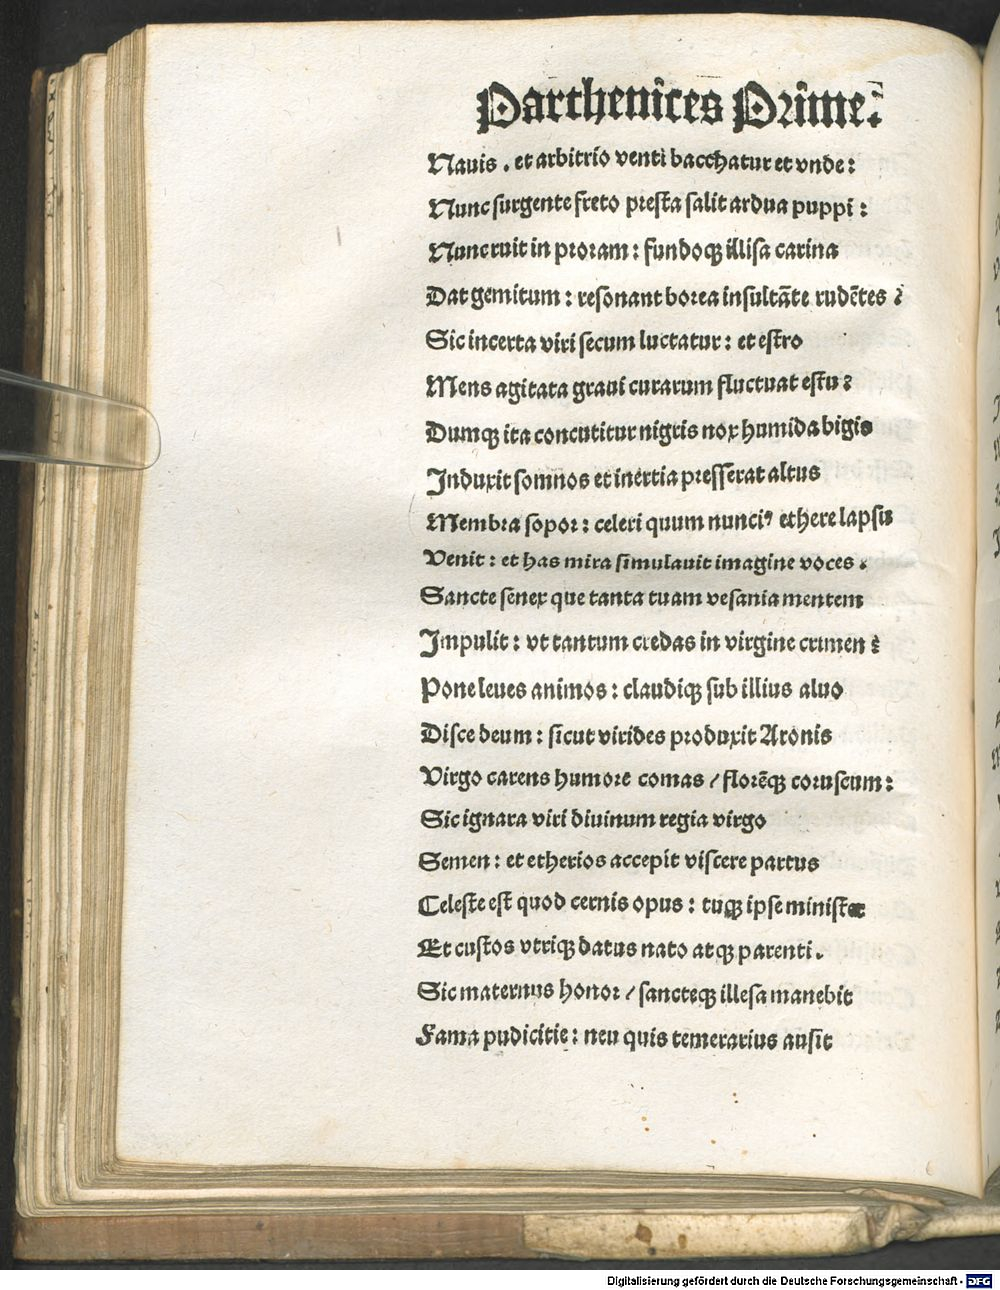 Parthenices Prime.
Nauis . et arbitrio venti bacchatur et vnde :
Nunc surgente freto presta salit ardua puppi :
Nunc ruit in proram : fundoqꝫ illisa carina
Dat gemitum : resonant borea insultãte rudẽtes ?
Sic incerta viri secum luctatur : et estro
Mens agitata graui curarum fluctuat estu ?
Dumqꝫ ita concutitur nigris nox humida bigis
Induxit somnos et inertia presserat altus
Membra sopor : celeri quum nunciꝰ ethere lapsu
Venit : et has mira simulauit imagine voces .
Sancte senex que tanta tuam vesania mentem
Impulit : vt tantum credas in virgine crimen ?
Pone leues animos : claudiqꝫ sub illius aluo
Disce deum : sicut virides produxit Aronis
Virgo carens humore comas / florẽqꝫ coruscum :
Sic ignara viri diuinum regia virgo
Semen : et etherios accepit viscere partus
Celeste est quod cernis opus : tuqꝫ ipse minister
Et custos vtriqꝫ datus nato atqꝫ parenti .
Sic maternus honor / sancteqꝫ illesa manebit
Fama pudicitie : neu quis temerarius ausit
Digitalisierung gefördert durch die Deutsche Forschungsgemeinschaft - DFG